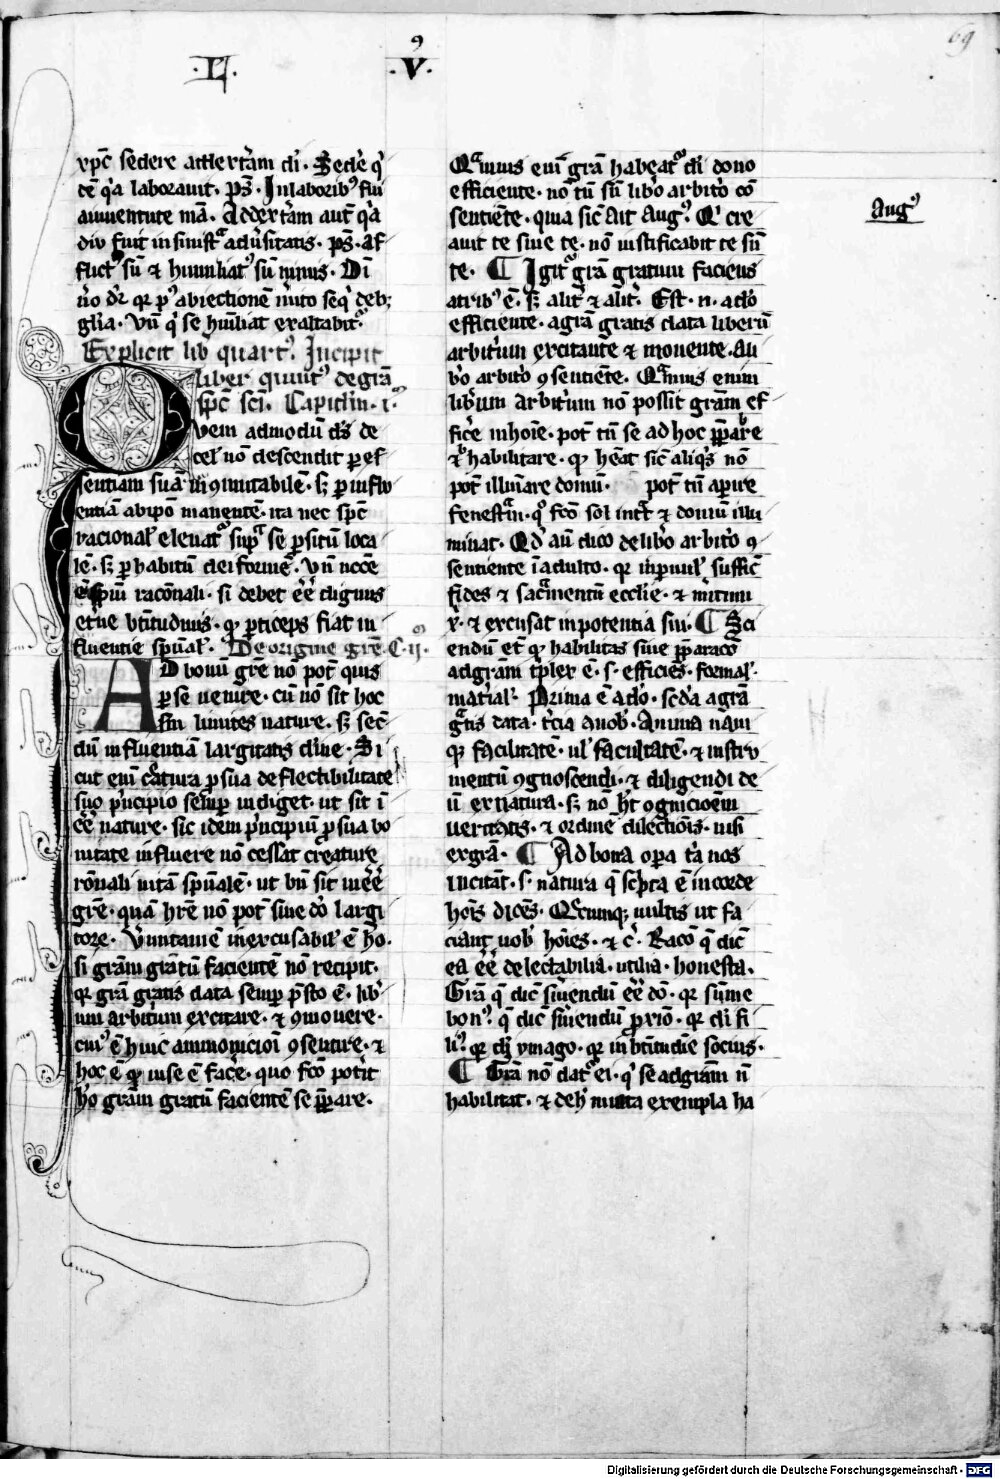 69
.L. .V.
xpc sedere ad dexteram di. Sede q̇
de q̇a laborauit. ps. In laborib⁹ fui
a iuuentute mea. Ad dexteram aut q̇a
diu fuit in sinistra aduersitatis. ps. Af
flict⁹ su & humiliat⁹ su nimis. Di
no dr qr p⁹ abiectione merito seq̇ deb;
glia. Vn q̇ se humiliat exaltabit.
Explicit lib quart⁹. Incipit
liber quint⁹ de gra
spc sci. Capitlm. i.
Quem admodu ds de
celo no descendit p es
sentiam sua incommutabile. s; p influ
entia ab ipo manente. ita nec spc
racional eleuat⁹ supra se p situ loca
le. s; p habitu deiforme. Vn necce
e spui raconali. si debet ee dignus
eterne btitudinis. q p̱ticeps fiat in
fluentie spual. De origine gre. C. ij.
AD bonu gre no pot quis
p se uenire. cu no sit hoc
sm limites nature. s; secu
dum influentia largitatis diuine. Si
cut em creatura p sua deflectibilitate
suo principio semper indiget. ut sit i
ee nature. sic idem principiu p sua bo
nitate influere no cessat creature
ronali uita spuale. ut bn sit in ee
gre. qua hre no pot sine do largi
tore. Veruntame inexcusabil e ho.
si gram gratu faciente no recipit.
qr gra gratis data semp psto e. lib
um arbitrium excitare. & 9mouere.
cui⁹ e huic ammonicioi 9sentire. &
hoc e q in se e facere. quo fco poterit
ho gram gratu faciente se ppare.
Qamuis eni gra habeat⁹ di dono
efficiente. no tn sn libo arbitrio co
sentiente. quia sic ait Aug⁹. Q cre
auit te sine te. no iustificabit te sn
te. ¶ Igit⁹ gra gratum faciens
a trib⁹ e. s; alit & alit. Est. n. a do
efficiente. a gra gratis data liberu
arbitrium excitante & monente. A li
bo arbitrio 9sentiente. Qamuis enim
liberum arbitrium no possit gram ef
ficere in hoie. pot tn se ad hoc ppare
& habilitare. q heat sic aliq̇s no
pot illuinare domu. pot tn aperire
fenestra. q⁹ fco sol intrat & domu illu
minat. Qd au dico de libo arbitrio 9
sentiente i adulto. qr in puul suffic
fides & sacramentu ecclie. & meritum
x. & excusat inpotentia sui. ¶ Sci
endu et q habilitas siue pparaco
ad gram tripler e. s. efficies. formal.
material. Prima e a do. scda a gra
gratis data. tercia a nob. Anima nam
q facilitate. ul facultate. & instru
mentu 9gnoscendi. & diligendi de
u ex natura. s; no ht cognicionem
ueritatis. & ordine dilectiois. nisi
ex gra. ¶ Ad bona opa tria nos
incitant. s. natura q̇ scpta e in corde
hois dices. Qecumq; uultis ut fa
ciant uob hoies. & c. Raco q̇ dic
ea ee delectabilia. utilia. honesta.
Gra q̇ dic seruiendu ee do. qr sume
bon⁹. q̇ dic seruiendu prio. qr di fi
li⁹. qr di ymago. qr in btitudie socius.
¶ Gra no dat⁹ ei. q̇ se ad gram n
habilitat. & deh multa exempla ha
Aug⁹
Digitalisierung gefördert durch die Deutsche Forschungsgemeinschaft - DFG